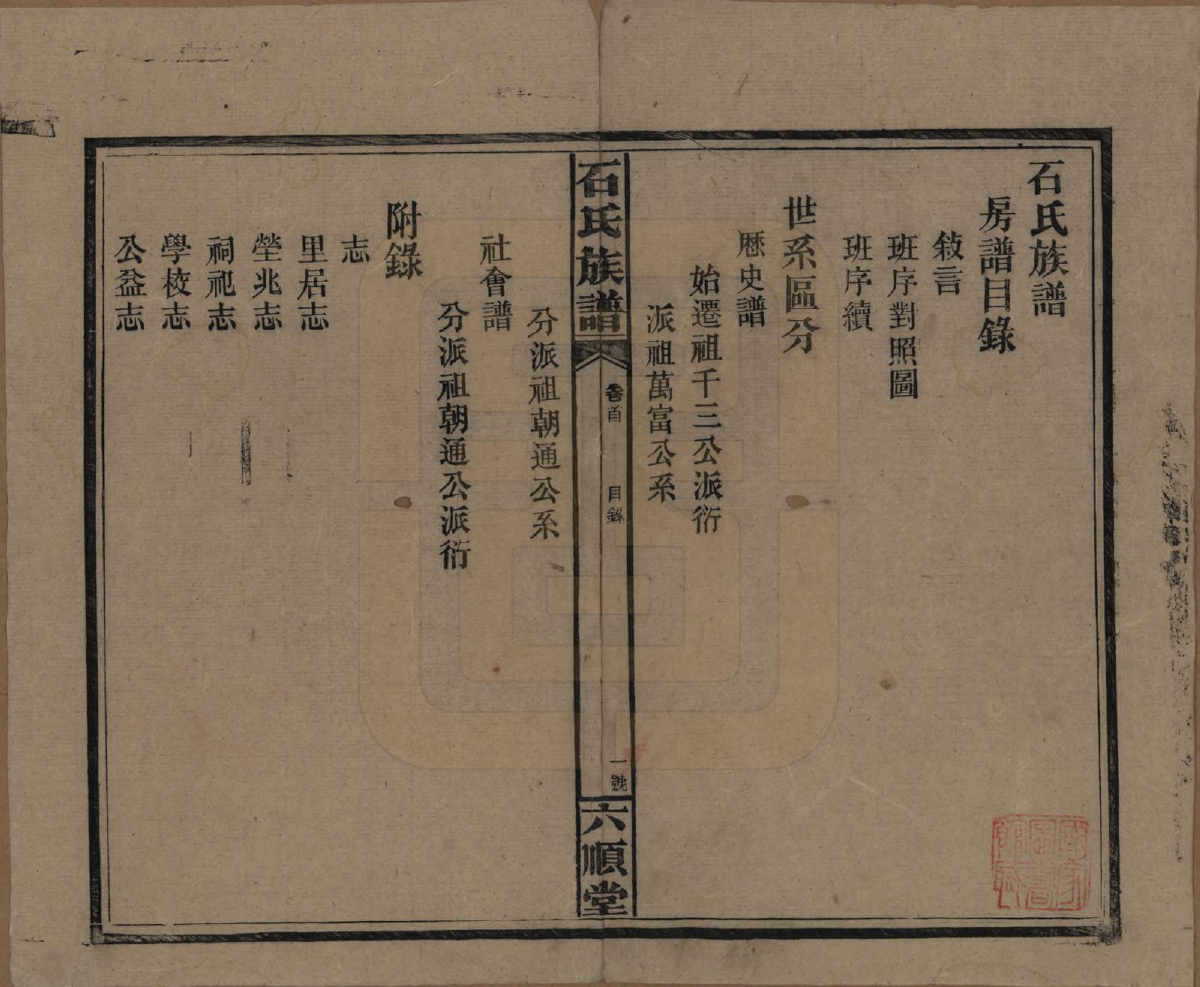 石氏族譜
房譜目錄
敍言
班序對照圖
班序續
世系區分
歷史譜
始遷祖千三公派衍
派祖萬富公系
石氏族譜
卷首
目錄
一號
六順堂
分派祖朝通公系
社會譜
分派祖朝通公派衍
附錄
志
里居志
塋兆志
祠祀志
學校志
公益志